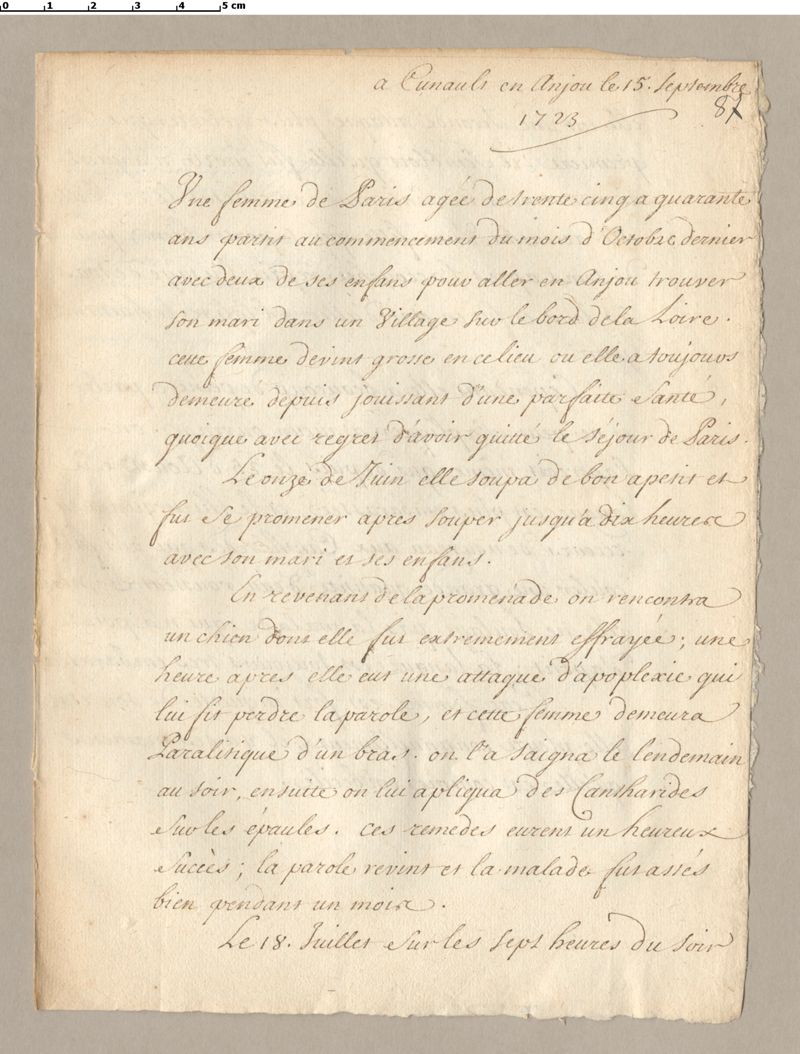 0 1 2 3 4 5 cm
a Cunault en Anjou le 15. septembre
1723
87
Une femme de Paris agée de trente cinq a quarante
ans partit au commencement du mois d'Octobre dernier
avec deux de ses enfans pour aller en Anjou trouver
son mari dans un Village sur le bord de la Loire.
cette femme devint grosse en ce lieu ou elle a toujours
demeure depuis jouissant d'une parfaite Santé,
quoique avec regret d'avoir quitté le séjour de Paris.
Le onze de Juin elle soupa de bon apetit et
fut se promener apres souper jusqu'a dix heures
avec son mari et ses enfans.
En revenant de la promenade on rencontra
un chien dont elle fut extremement effrayée; une
heure apres elle eut une attaque d'apoplexie qui
lui fit perdre la parole, et cette femme demeura
Paralitique d'un bras. on l'a saigna le lendemain
au soir, ensuitte on lui apliqua des Cantharides
sur les épaules. ces remedes eurent un heureux
succès; la parole revint et la malade fut assés
bien pendant un mois.
Le 18. Juillet sur les sept heures du soir